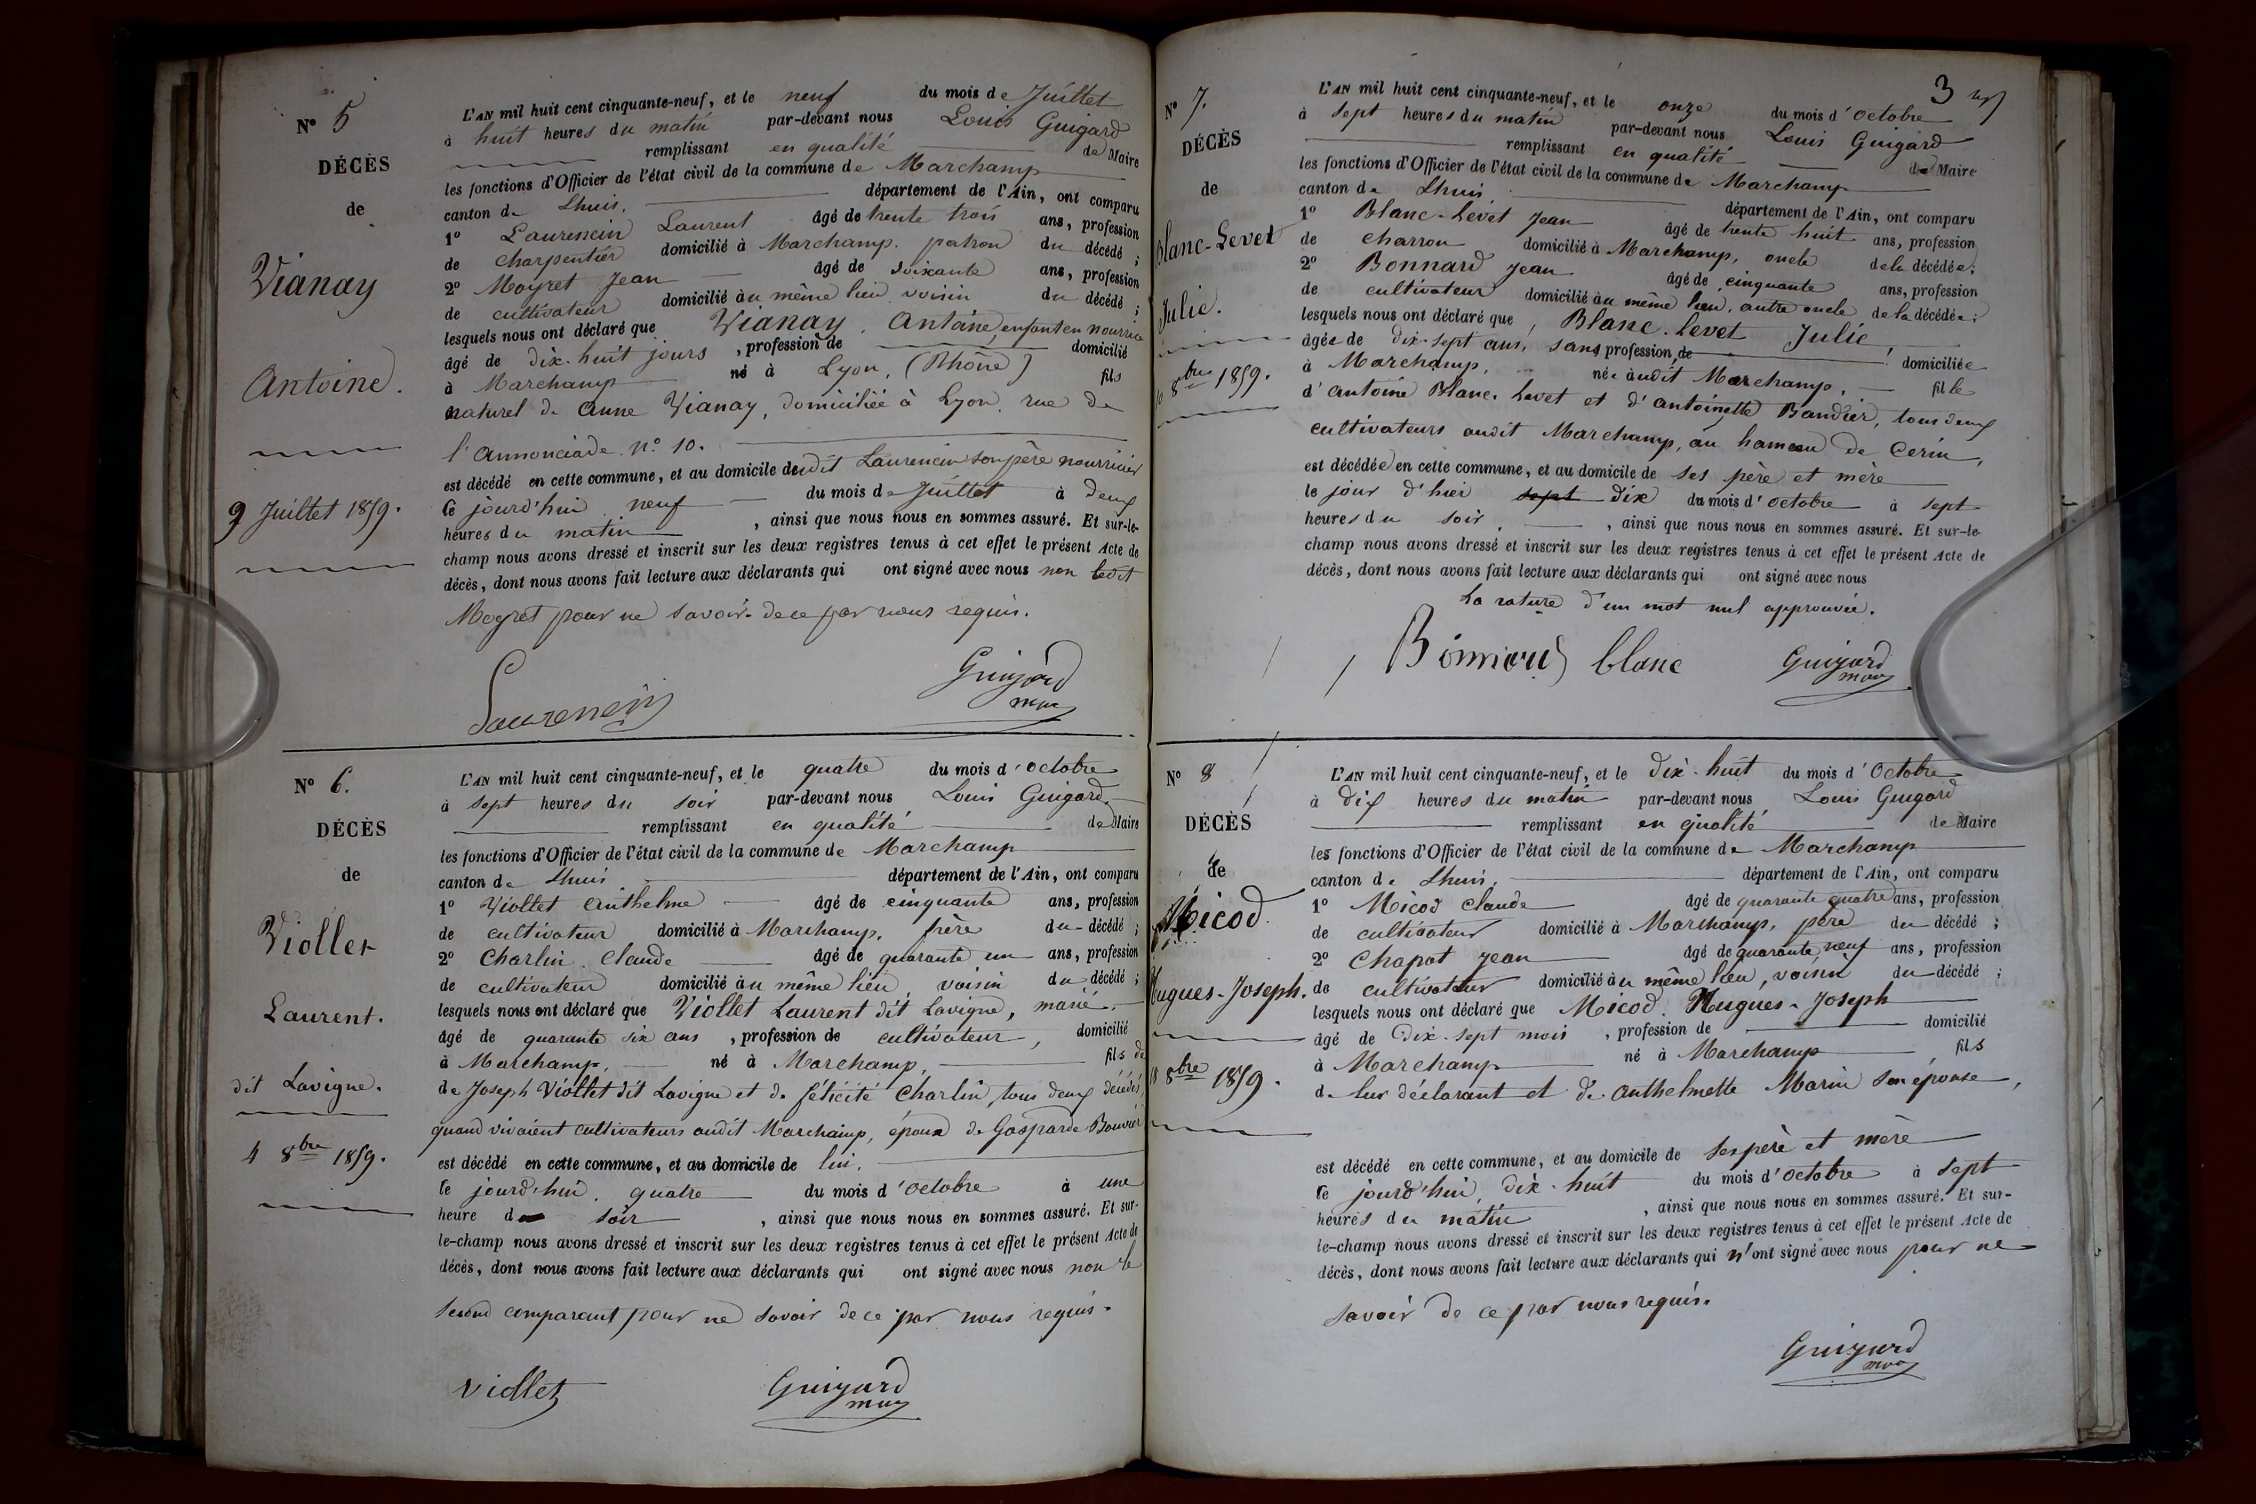 N° 5
DÉCÈS
de
Vianay
Antoine.
9 Juillet 1859.
L'AN mil huit cent cinquante-neuf, et le neuf du mois de Juillet
à huit heures du matin par-devant nous Louis Guigard
remplissant en qualité de Maire
les fonctions d'Officier de l'état civil de la commune de Marchamp
canton de Lhuis. département de l'Ain, ont comparu
1° Laurencin Laurent âgé de trente trois ans, profession
de charpentier domicilié à Marchamp. patron du décédé ;
2° Moyret Jean âgé de soixante ans, profession
de cultivateur domicilié au même lieu voisin du décédé ;
lesquels nous ont déclaré que Vianay, Antoine, enfant en nourrice
âgé de dix-huit jours , profession de domicilié
à Marchamp né à Lyon, (Rhône) fils
naturel de Anne Vianay, domiciliée à Lyon, rue de
l'Annonciade n° 10.
est décédé en cette commune, et au domicile dudit Laurencin son père nourricier
le jourd'hui neuf du mois de Juillet à deux
heures du matin , ainsi que nous nous en sommes assuré. Et sur-le-
champ nous avons dressé et inscrit sur les deux registres tenus à cet effet le présent Acte de
décès, dont nous avons fait lecture aux déclarants qui ont signé avec nous non ledit
Moyret pour ne savoir de ce par nous requis.
Laurencin Guigard
maire
N° 6.
DÉCÈS
de
Viollet
Laurent.
dit Lavigne.
4 8bre 1859.
L'AN mil huit cent cinquante-neuf, et le quatre du mois d'octobre
à sept heures du soir par-devant nous Louis Guigard
remplissant en qualité de Maire
les fonctions d'Officier de l'état civil de la commune de Marchamp
canton de Lhuis département de l'Ain, ont comparu
1° Viollet Anthelme âgé de cinquante ans, profession
de cultivateur domicilié à Marchamp, frère du décédé ;
2° Charlin Claude âgé de quarante un ans, profession
de cultivateur domicilié au même lieu, voisin du décédé ;
lesquels nous ont déclaré que Viollet Laurent dit Lavigne, marié.
âgé de quarante six ans , profession de cultivateur, domicilié
à Marchamp, né à Marchamp, fils de
de Joseph Viollet dit Lavigne et de félicité Charlin, tous deux décédés,
quand vivaient cultivateurs audit Marchamp, époux de Gasparde Bouvier
est décédé en cette commune, et au domicile de lui.
le jourd'hui quatre du mois d'octobre à une
heure du soir , ainsi que nous nous en sommes assuré. Et sur-
le-champ nous avons dressé et inscrit sur les deux registres tenus à cet effet le présent Acte de
décès, dont nous avons fait lecture aux déclarants qui ont signé avec nous non le
second comparant pour ne savoir de ce par nous requis.
Viollet Guigard
maire
3
N° 7.
DÉCÈS
de
Blanc-Levet
Julie.
10 8bre 1859.
L'AN mil huit cent cinquante-neuf, et le onze du mois d'octobre
à sept heures du matin par-devant nous Louis Guigard
remplissant en qualité de Maire
les fonctions d'Officier de l'état civil de la commune de Marchamp
canton de Lhuis département de l'Ain, ont comparu
1° Blanc-Levet Jean âgé de trente huit ans, profession
de charron domicilié à Marchamp, oncle de la décédée ;
2° Bonnard Jean âgé de cinquante ans, profession
de cultivateur domicilié au même lieu, autre oncle de la décédée ;
lesquels nous ont déclaré que, Blanc-Levet Julie,
âgée de dix-sept ans, sans profession, de domiciliée
à Marchamp, née audit Marchamp, fille
d'Antoine Blanc-Levet et d'Antoinette Bandier, tous deux
cultivateurs audit Marchamp, au hameau de Cerin,
est décédée en cette commune, et au domicile de ses père et mère
le jour d'hier sept dix du mois d'octobre à sept
heures du soir , ainsi que nous nous en sommes assuré. Et sur-le-
champ nous avons dressé et inscrit sur les deux registres tenus à cet effet le présent Acte de
décès, dont nous avons fait lecture aux déclarants qui ont signé avec nous
La rature d'un mot nul approuvée.
Bonnard blanc Guigard
maire
N° 8
DÉCÈS
de
Micod
Hugues-Joseph.
18 8bre 1859.
L'AN mil huit cent cinquante-neuf, et le dix-huit du mois d'Octobre
à dix heures du matin par-devant nous Louis Guigard
remplissant en qualité de Maire
les fonctions d'Officier de l'état civil de la commune de Marchamp
canton de Lhuis. département de l'Ain, ont comparu
1° Micod Claude âgé de quarante quatre ans, profession
de cultivateur domicilié à Marchamp, père du décédé ;
2° Chapot Jean âgé de quarante neuf ans, profession
de cultivateur domicilié au même lieu, voisin du décédé ;
lesquels nous ont déclaré que Micod Hugues-Joseph
âgé de dix-sept mois , profession de domicilié
à Marchamp né à Marchamp fils
de lui déclarant et de Anthelmette Marin son épouse,
est décédé en cette commune, et au domicile de ses père et mère
le jourd'hui, dix-huit du mois d'octobre à sept
heures du matin , ainsi que nous nous en sommes assuré. Et sur-
le-champ nous avons dressé et inscrit sur les deux registres tenus à cet effet le présent Acte de
décès, dont nous avons fait lecture aux déclarants qui n'ont signé avec nous pour ne
savoir de ce par nous requis.
Guigard
maire